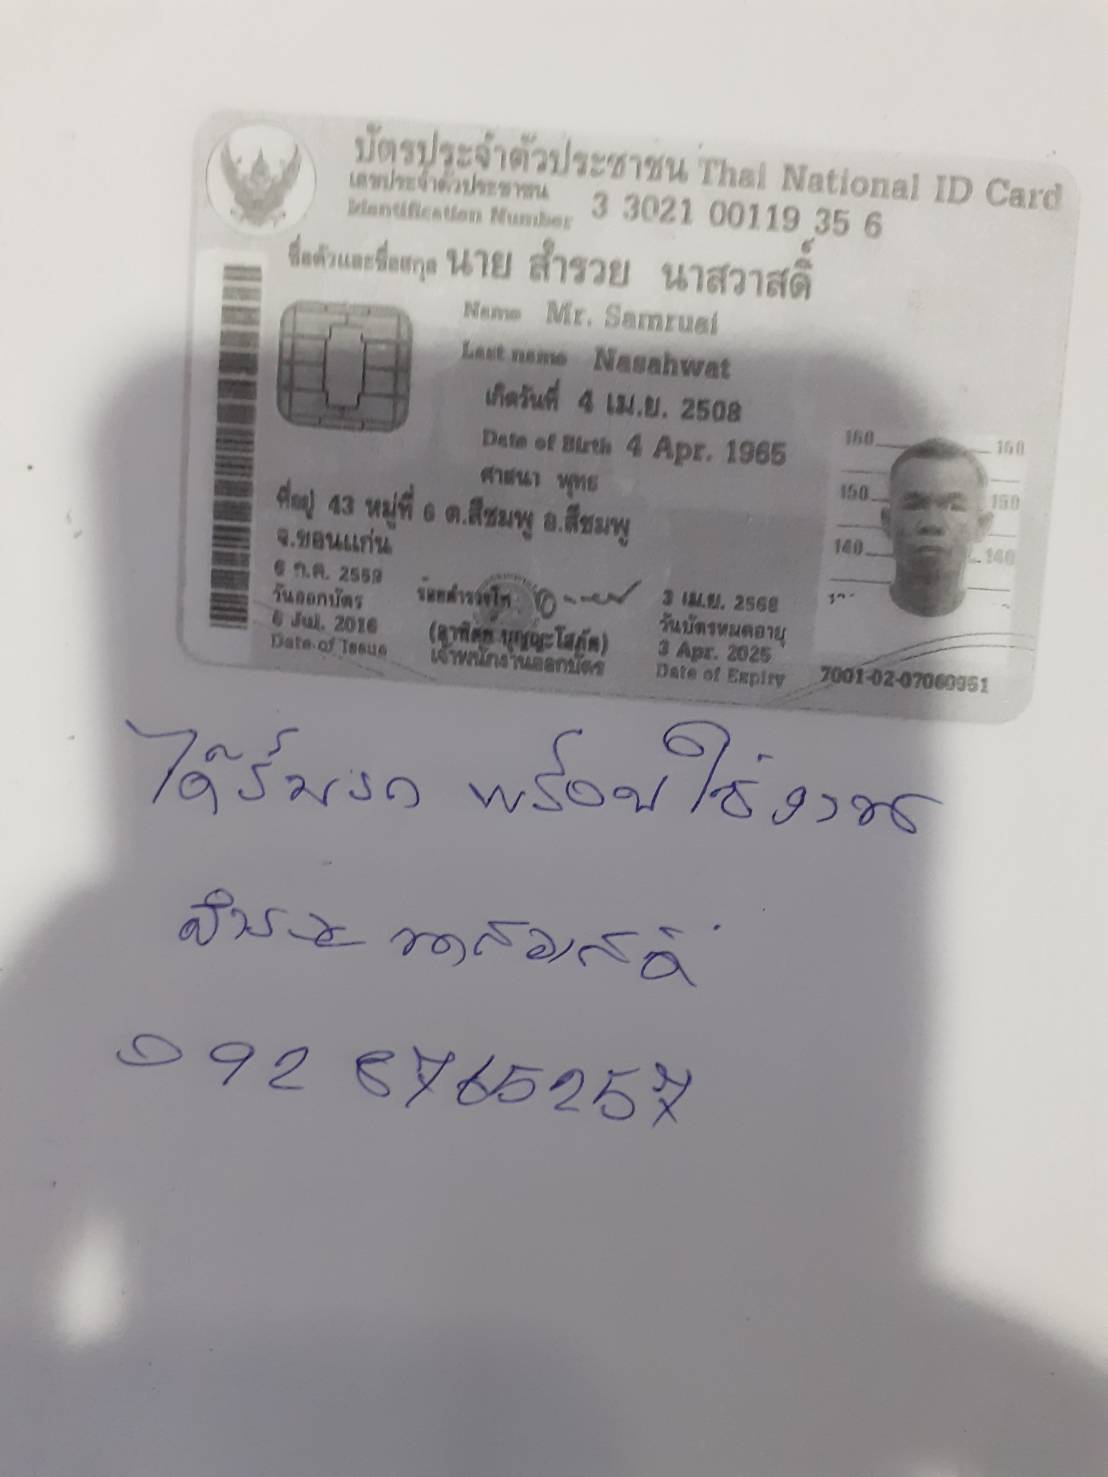 บัตรประจำตัวประชาชน Thai National ID Card
เลขประจำตัวประชาชน
Identification Number 3 3021 00119 35 6
ชื่อตัวและชื่อสกุล นาย สำรวย นาสวาสดิ์
Name Mr. Samruai
Last name Nasahwat
เกิดวันที่ 4 เม.ย. 2508
Date of Birth 4 Apr. 1965
ศาสนา พุทธ
ที่อยู่ 43 หมู่ที่ 6 ต.สีชมพู อ.สีชมพู
จ.ขอนแก่น
6 ก.ค. 2559
วันออกบัตร
6 Jul. 2016
Date of Issue
ร้อยตำรวจโท
เจ้าพนักงานออกบัตร
3 เม.ย. 2568
วันบัตรหมดอายุ
3 Apr. 2025
Date of Expiry
160 160
150 150
140 140
7001-02-07060951
ได้รับรถ พร้อมใช้งาน
นาสวาสดิ์
092 8765257